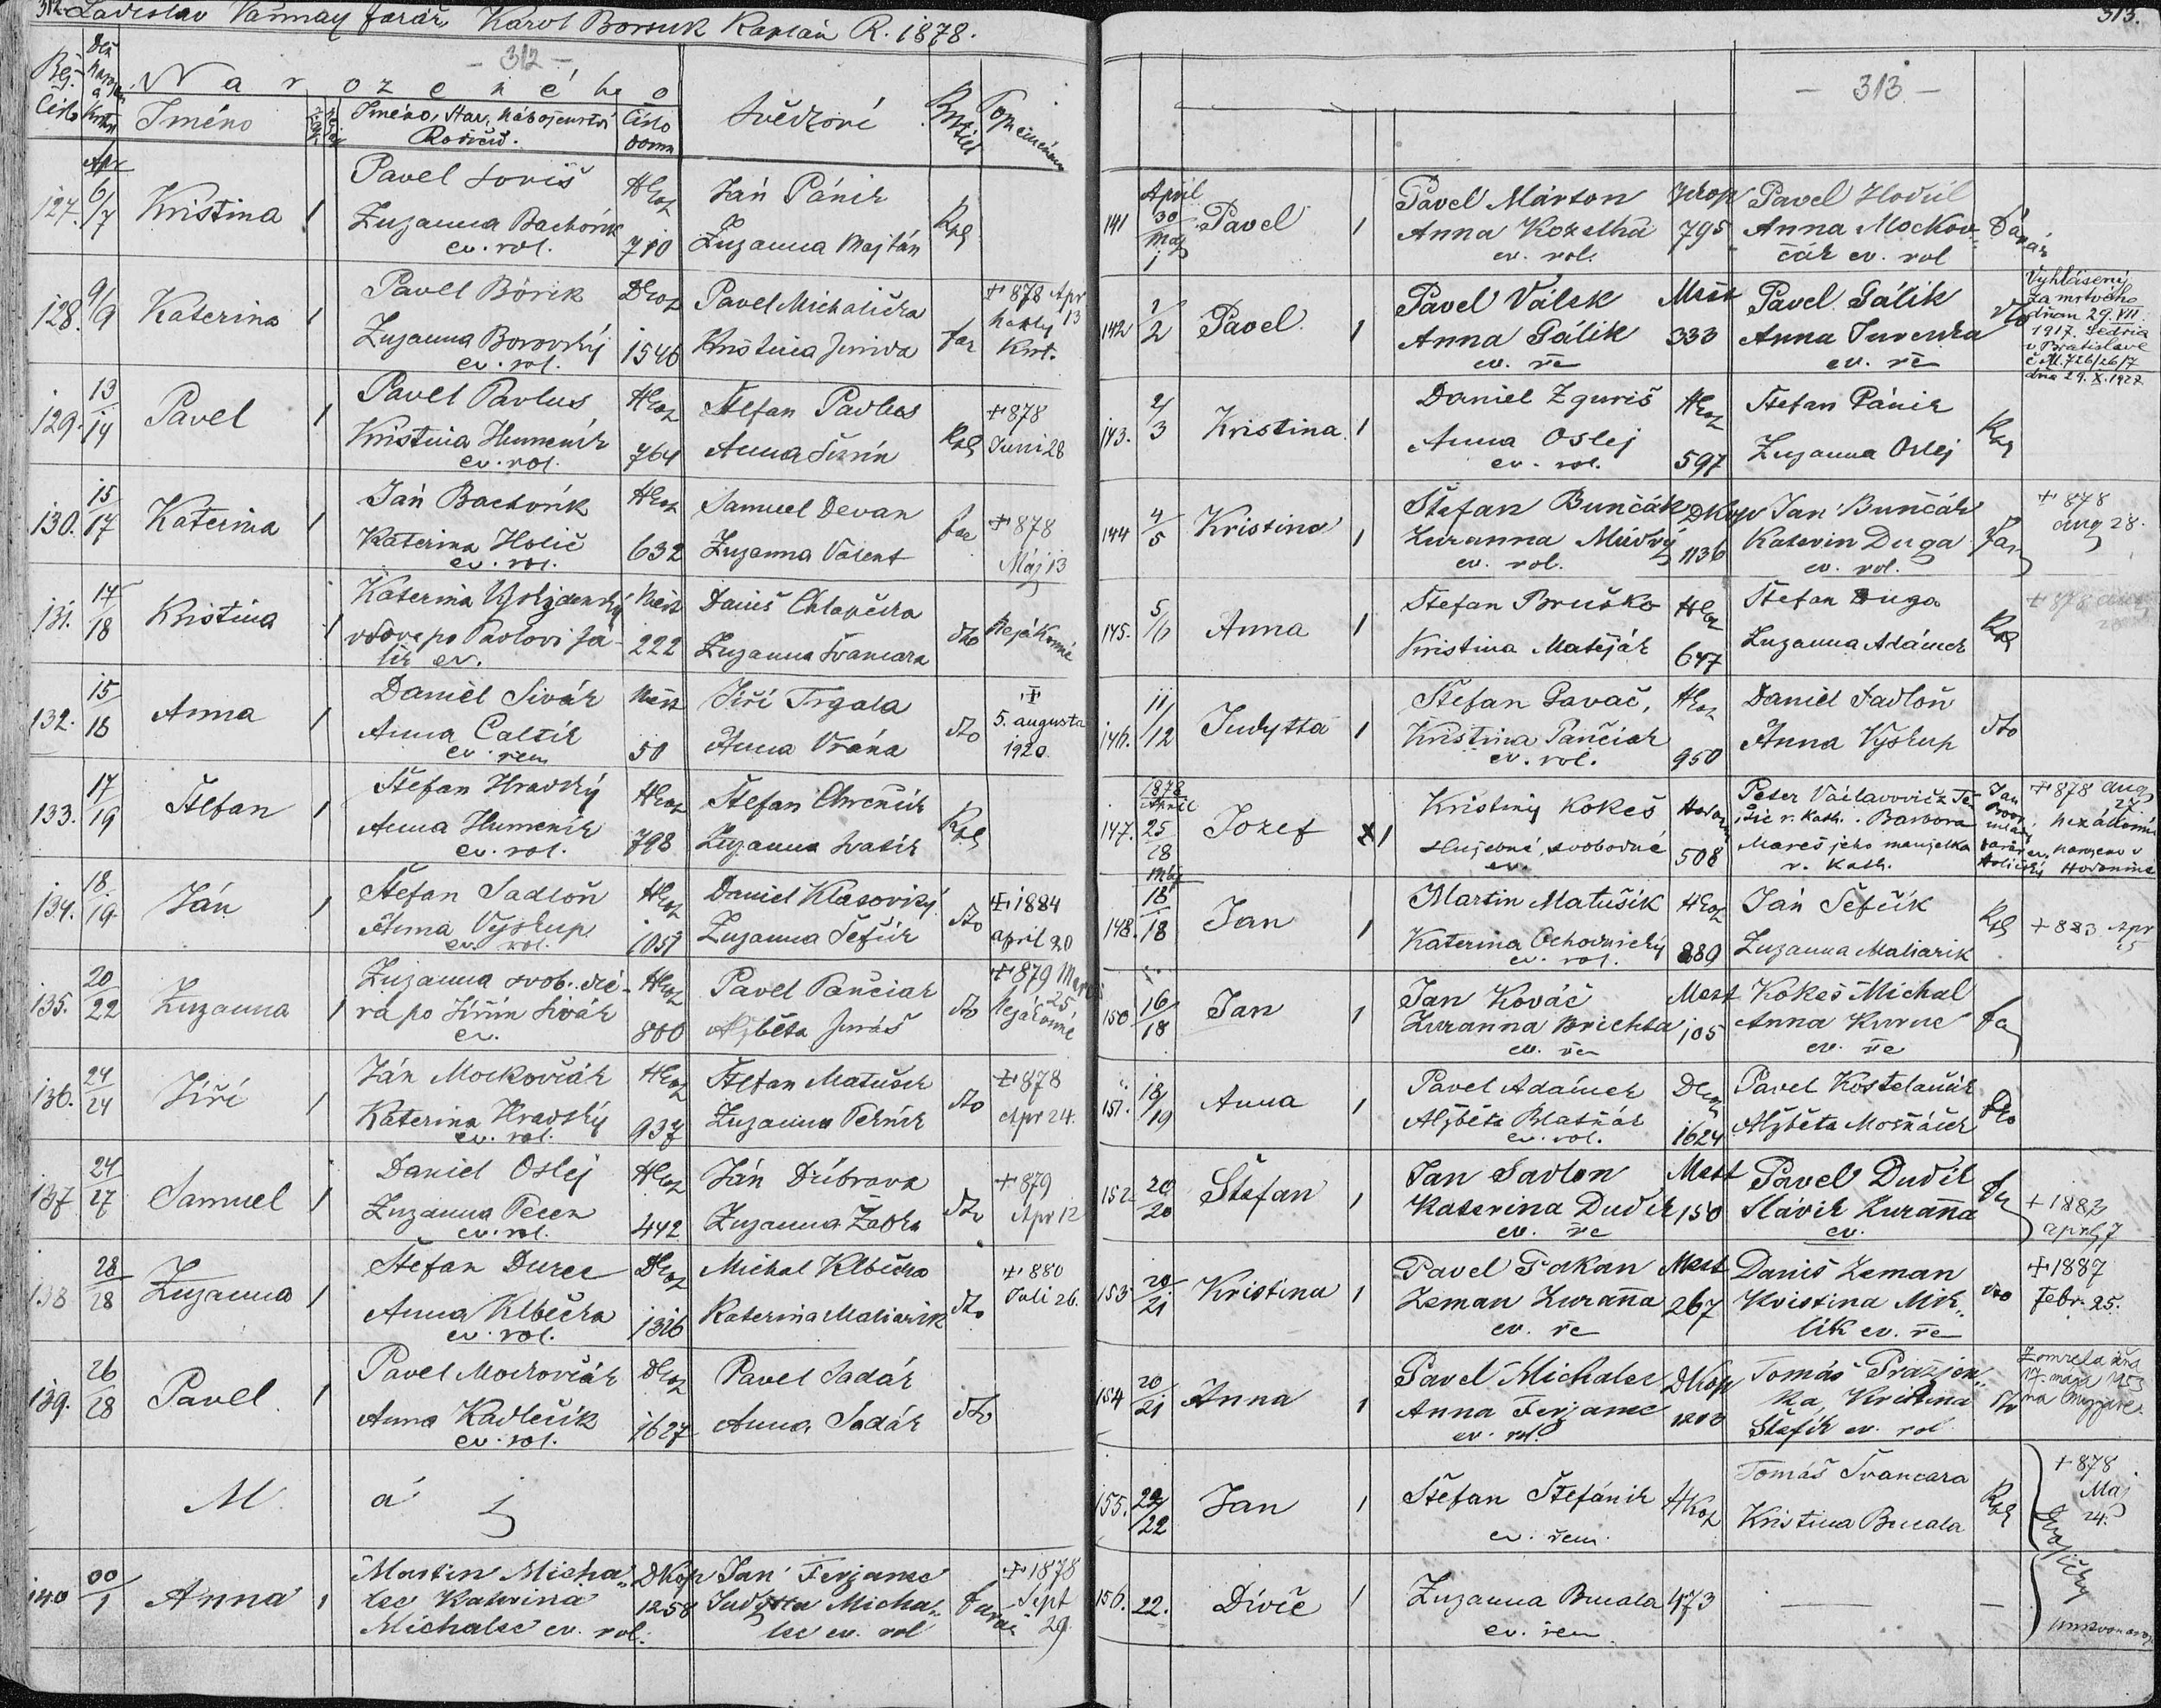 312. Ladislav Vannay farář, Karol Borsuk Kaplán R. 1878.
- 312 -
Narozeného
Číslo
Jméno
Jméno, Stav, Náboženství
Rodičů.
Číslo
domu
Svědkové
Apr
127. 6/7 Kristina 1
Pavel Soriš
Zuzanna Bachorík
ev. rol.
HKoz
710
Ján Pánik
Zuzanna Majtán
Kpl
128. 9/9 Katerina 1
Pavel Bórik
Zuzanna Borovský
ev. rol.
DKoz
1546
Pavel Michalička
Kristina
far
+ 878 Apr
13
129. 13/14 Pavel 1
Pavel Pavlus
Kristina Humeník
ev. rol.
HKoz
764
Štefan Pavlus
Anna
Kpl
+ 878
Juni 28
130. 15/17 Katerina 1
Ján Bachorík
Katerina Holič
ev. rol.
HKoz
632
Samuel Devan
Zuzanna Valent
far
+ 878
Máj 13
131. 17/18 Kristina 1
Katerina
vdova po Pavlovi
ev.
Mest
222
Daniš Chlapečka
Zuzanna Švancara
dto
132. 15/18 Anna 1
Daniel Sivák
Anna Caltík
ev. rem
Mest
50
Jiří Trgala
Anna Vrána
dto
+
5. augusta
1920
133. 17/19 Štefan 1
Štefan Hradský
Anna Humeník
ev. rol.
HKoz
798
Štefan Chrenčík
Zuzanna
Kpl
134. 18/19 Ján 1
Štefan Sadloň
Anna Vyskup
ev. rol.
HKoz
1051
Daniel Klasovitý
Zuzanna Šefčík
dto
+ 1884
april 20
135. 20/22 Zuzanna 1
Zuzanna svob. dcé-
ra po Jiřím Sivák
ev.
HKoz
800
Pavel Pančiak
Alžběta Juráš
dto
+ 879
25
136. 24/24 Jiří 1
Ján Mockovčiak
Katerina Hradský
ev. rol.
HKoz
937
Štefan Matušek
Zuzanna
dto
+ 878
Apr 24.
137 24/27 Samuel 1
Daniel Oslej
Zuzanna Pecen
ev. rol.
HKoz
442
Ján Dúbrava
Zuzanna
dto
+ 879
Apr 12
138 28/28 Zuzanna 1
Štefan Durec
Anna Klbečka
ev. rol.
DKoz
1316
Michal Klbečka
Katerina Maliarik
dto
+ 880
Juli 26.
139. 26/28 Pavel 1
Pavel Mockovčiak
Anna Kadlečík
ev. rol.
DKoz
1627
Pavel Sadák
Anna Sadák
dto
Máj
140 00/1 Anna 1
Martin Micha-
lec Katerina
Michalec ev. rol.
DKop
1258
Jan Ferjanec
Judytta Micha-
lec ev. rol
farár
+ 1878
Sept
29
313.
- 313 -
141 April 30/Maj 1 Pavel 1
Pavel Márton
Anna Kozelha
ev. rol.
795
Pavel Hodúl
Anna Mockov-
čák ev. rol
142 1/2 Pavel. 1
Pavel Válek
Anna Gálik
ev. ře
Mest
333
Pavel Gálik
Anna Jurenka
ev. ře
dto
Vyhlásený
za mrtvého
dňom 29. VII.
1917. Sedria
v Bratislave
726/26/7
dňa 29. X. 1927
143. 2/3 Kristina. 1
Daniel Zguriš
Anna Oslej
ev. rol.
HKoz
597
Štefan Pánik
Zuzanna Oslej
Kpl
144 4/5 Kristina 1
Štefan Bunčák
Zuzanna Múdrý
ev. rol.
DKop
1136
Jan Bunčák
Katerin Duga
ev. rol.
Far
+ 878
aug 28.
145. 5/6 Anna 1
Štefan Bruško
Kristina Matěják
HKoz
647
Štefan Duga
Zuzanna Adámek
Kpl
+ 878 aug
146. 11/12 Judytta 1
Štefan Gavač,
Kristina Pančiak
ev. rol.
HKoz
950
Daniel Sadloň
Anna Vyskup
dto
1878
April
147. 25/28 Jozef 1
Kristiny Kokeš
služebné, svobodné
ev.
508
Peter Václavovič
r. kath. Barbora
Mareš jeho manželka
r. kath.
+ 878 aug
27
narozen v
Hodoníně
Máj
148. 18/18 Jan 1
Martin Matušík
Katerina Ochodnický
ev. rol.
HKoz
889
Ján Šefčík
Zuzanna Maliarik
Kpl
+ 883 Apr
150 16/18 Jan 1
Jan Kováč
Zuzanna Brichta
ev. ře
Mest
105
Kokeš Michal
Anna Kuruc
ev. ře
fa
151. 18/19 Anna 1
Pavel Adámek
Alžběta Blatnák
ev. rol.
DKoz
1624
Pavel Kostelančik
Alžběta
dto
152 20/20 Štefan 1
Jan Sadlon
Katerina Dudík
ev. ře
Mest
150
Pavel Dudík
Slávik Zuzanna
ev.
+ 1882
april 7
153 20/21 Kristina 1
Pavel Pakan
Zeman Zuzanna
ev. ře
Mest
267
Daniš Zeman
Kristina Mik-
lik ev. ře
dto
+ 1887
Febr. 25.
154 20/21 Anna 1
Pavel Michalec
Anna Ferjanec
ev. rol.
DKop
Tomáš Prazjen-
ka, Kristina
Štefík ev. rol
dto
Zomrela dňa
17. mája 1953
na Myjave
155. 22/22 Jan 1
Štefan Štefánik
ev. řem.
HKoz
Tomáš Švancara
Kristina Bucala
Kpl
+ 878
Máj
24.
Dvojičky
156. 22. Divče 1
Zuzanna Bucala
ev. řem
473